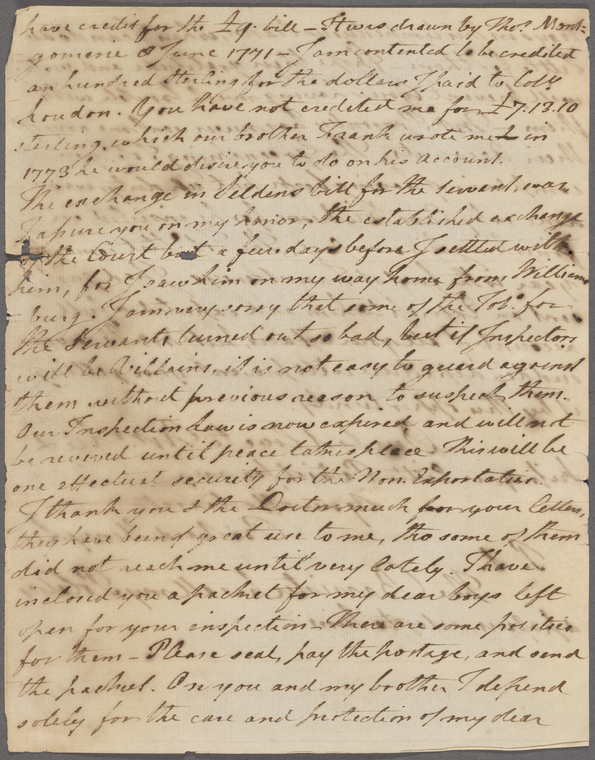 have credit for the £9. bill – It was drawn by Thos. Mont-
gomerie 8 June 1771 – I am contented to be credited
an hundred Sterling for the dollars I paid to Colo.
Loudon. You have not credited me for £7.13.10
sterling, which our brother Frank wrote me in
1773 he would desire you to do on his account.
The exchange in Seldens bill for the Servant, was
I assure you on my honor, the established exchange
of the Court but a few days before I settled with
him, for I saw him on my way home from Williams-
burg. I am very sorry that some of the Tobo. for
the Servants turned out so bad, but if Inspectors
will be Villains, it is not easy to guard against
them without previous reason to suspect them.
Our Inspection Law is now expired and will not
be revived until peace takes place. This will be
one effectual security for the Non Exportation.
I thank you & the Doctor much for your letters,
they have been of great use to me, tho some of them
did not reach me until very lately. I have
inclosed you a packet for my dear boys left
open for your inspection – There are some politics
for them – Please seal, pay the postage, and send
the packet. On you and my brother I depend
solely for the care and protection of my dear